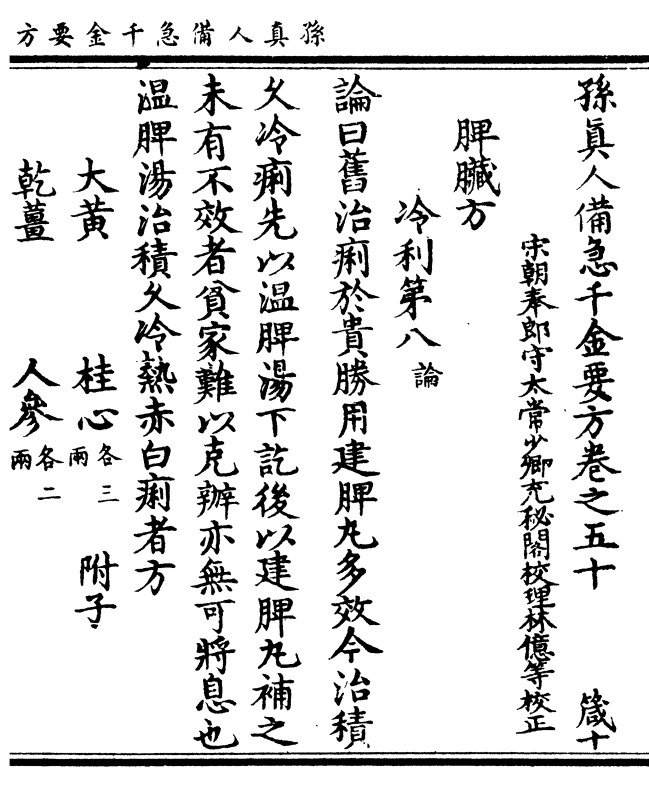 孫真人備急千金要方
孫真人備急千金要方卷之五十 箴十
宋朝奉郎守太常少卿充秘閣校理林億等校正
脾臓方
冷利第八 論
論曰舊治痢於貴勝用建脾丸多效今治積
久冷痢先以温脾湯下訖後以建脾丸補之
未有不效者貧家難以克辦亦無可將息也
温脾湯治積久冷熱赤白痢者方
大黄 桂心各三兩 附子
乾薑 人參各二兩